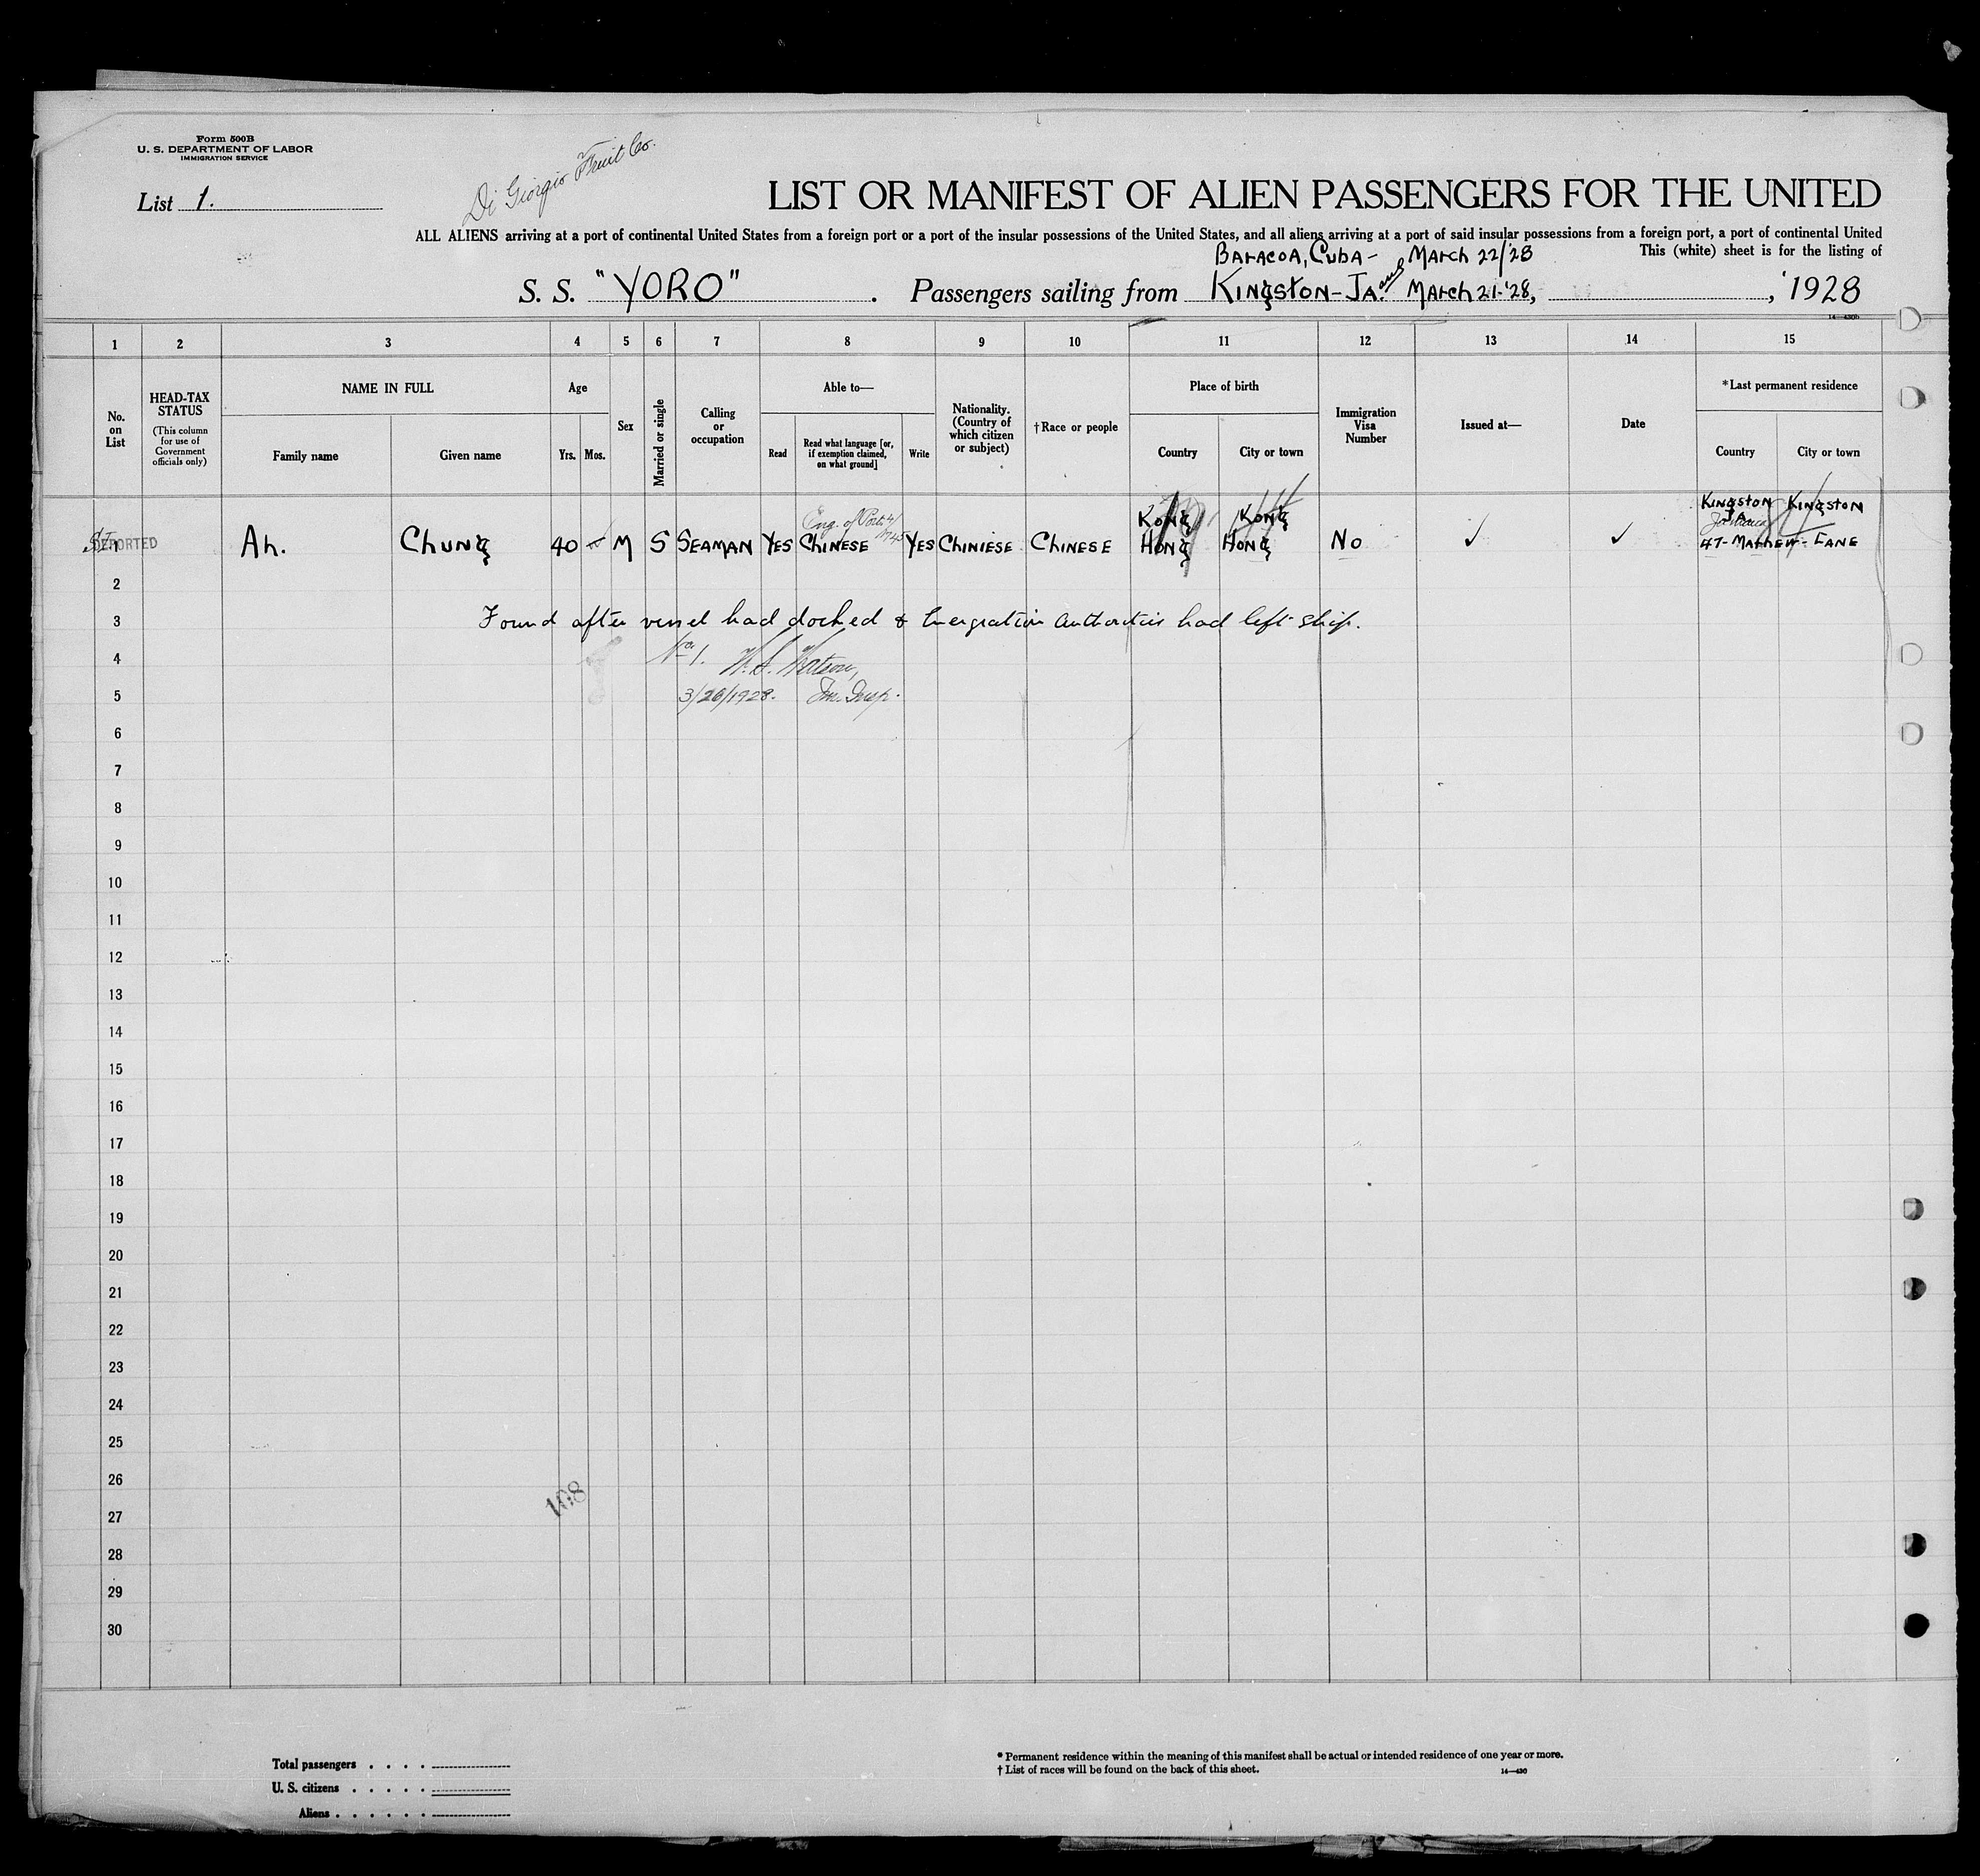 Form 500B
U. S. DEPARTMENT OF LABOR
IMMIGRATION SERVICE
Di Giorgio Fruit Co.
List 1.
LIST OR MANIFEST OF ALIEN PASSENGERS FOR THE UNITED
ALL ALIENS arriving at a port of continental United States from a foreign port or a port of the insular possessions of the United States, and all aliens arriving at a port of said insular possessions from a foreign port, a port of continental United
This (white) sheet is for the listing of
Baracoa, Cuba - March 22/28
S. S. "YORO" . Passengers sailing from Kingston - Ja. and March 21-'28, , '1928
1 2 3 4 5 6 7 8 9 10 11 12 13 14 15
No. on List
HEAD-TAX STATUS
(This column for use of Government officials only)
NAME IN FULL
Family name
Given name
Age
Yrs.
Mos.
Sex
Married or single
Calling or occupation
Able to—
Read
Read what language [or, if exemption claimed, on what ground]
Write
Nationality. (Country of which citizen or subject)
†Race or people
Place of birth
Country
City or town
Immigration Visa Number
Issued at—
Date
*Last permanent residence
Country
City or town
Kong Kong Kingston Kingston
Ja
Jamaica
DEPORTED Ah. Chung 40 M S SEAMAN YES CHINESE YES CHINIESE CHINESE HONG HONG No ✓ ✓ 47- MATHEW- LANE
2
3 Found after vessel had docked & Imegration Authorities had left ship.
4 No 1. W. A. Watson,
5 3/26/1928. Im. Insp.
6
7
8
9
10
11
12
13
14
15
16
17
18
19
20
21
22
23
24
25
26
108
27
28
29
30
Total passengers . . . .
U. S. citizens . . . . .
Aliens . . . . . .
* Permanent residence within the meaning of this manifest shall be actual or intended residence of one year or more.
† List of races will be found on the back of this sheet.
14—430